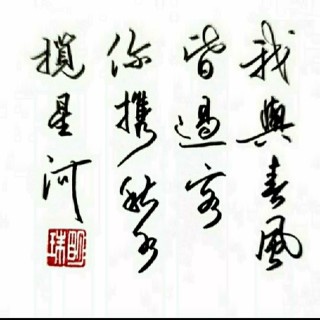 我與春風
皆過客
你攜秋水
攬星河
明珠